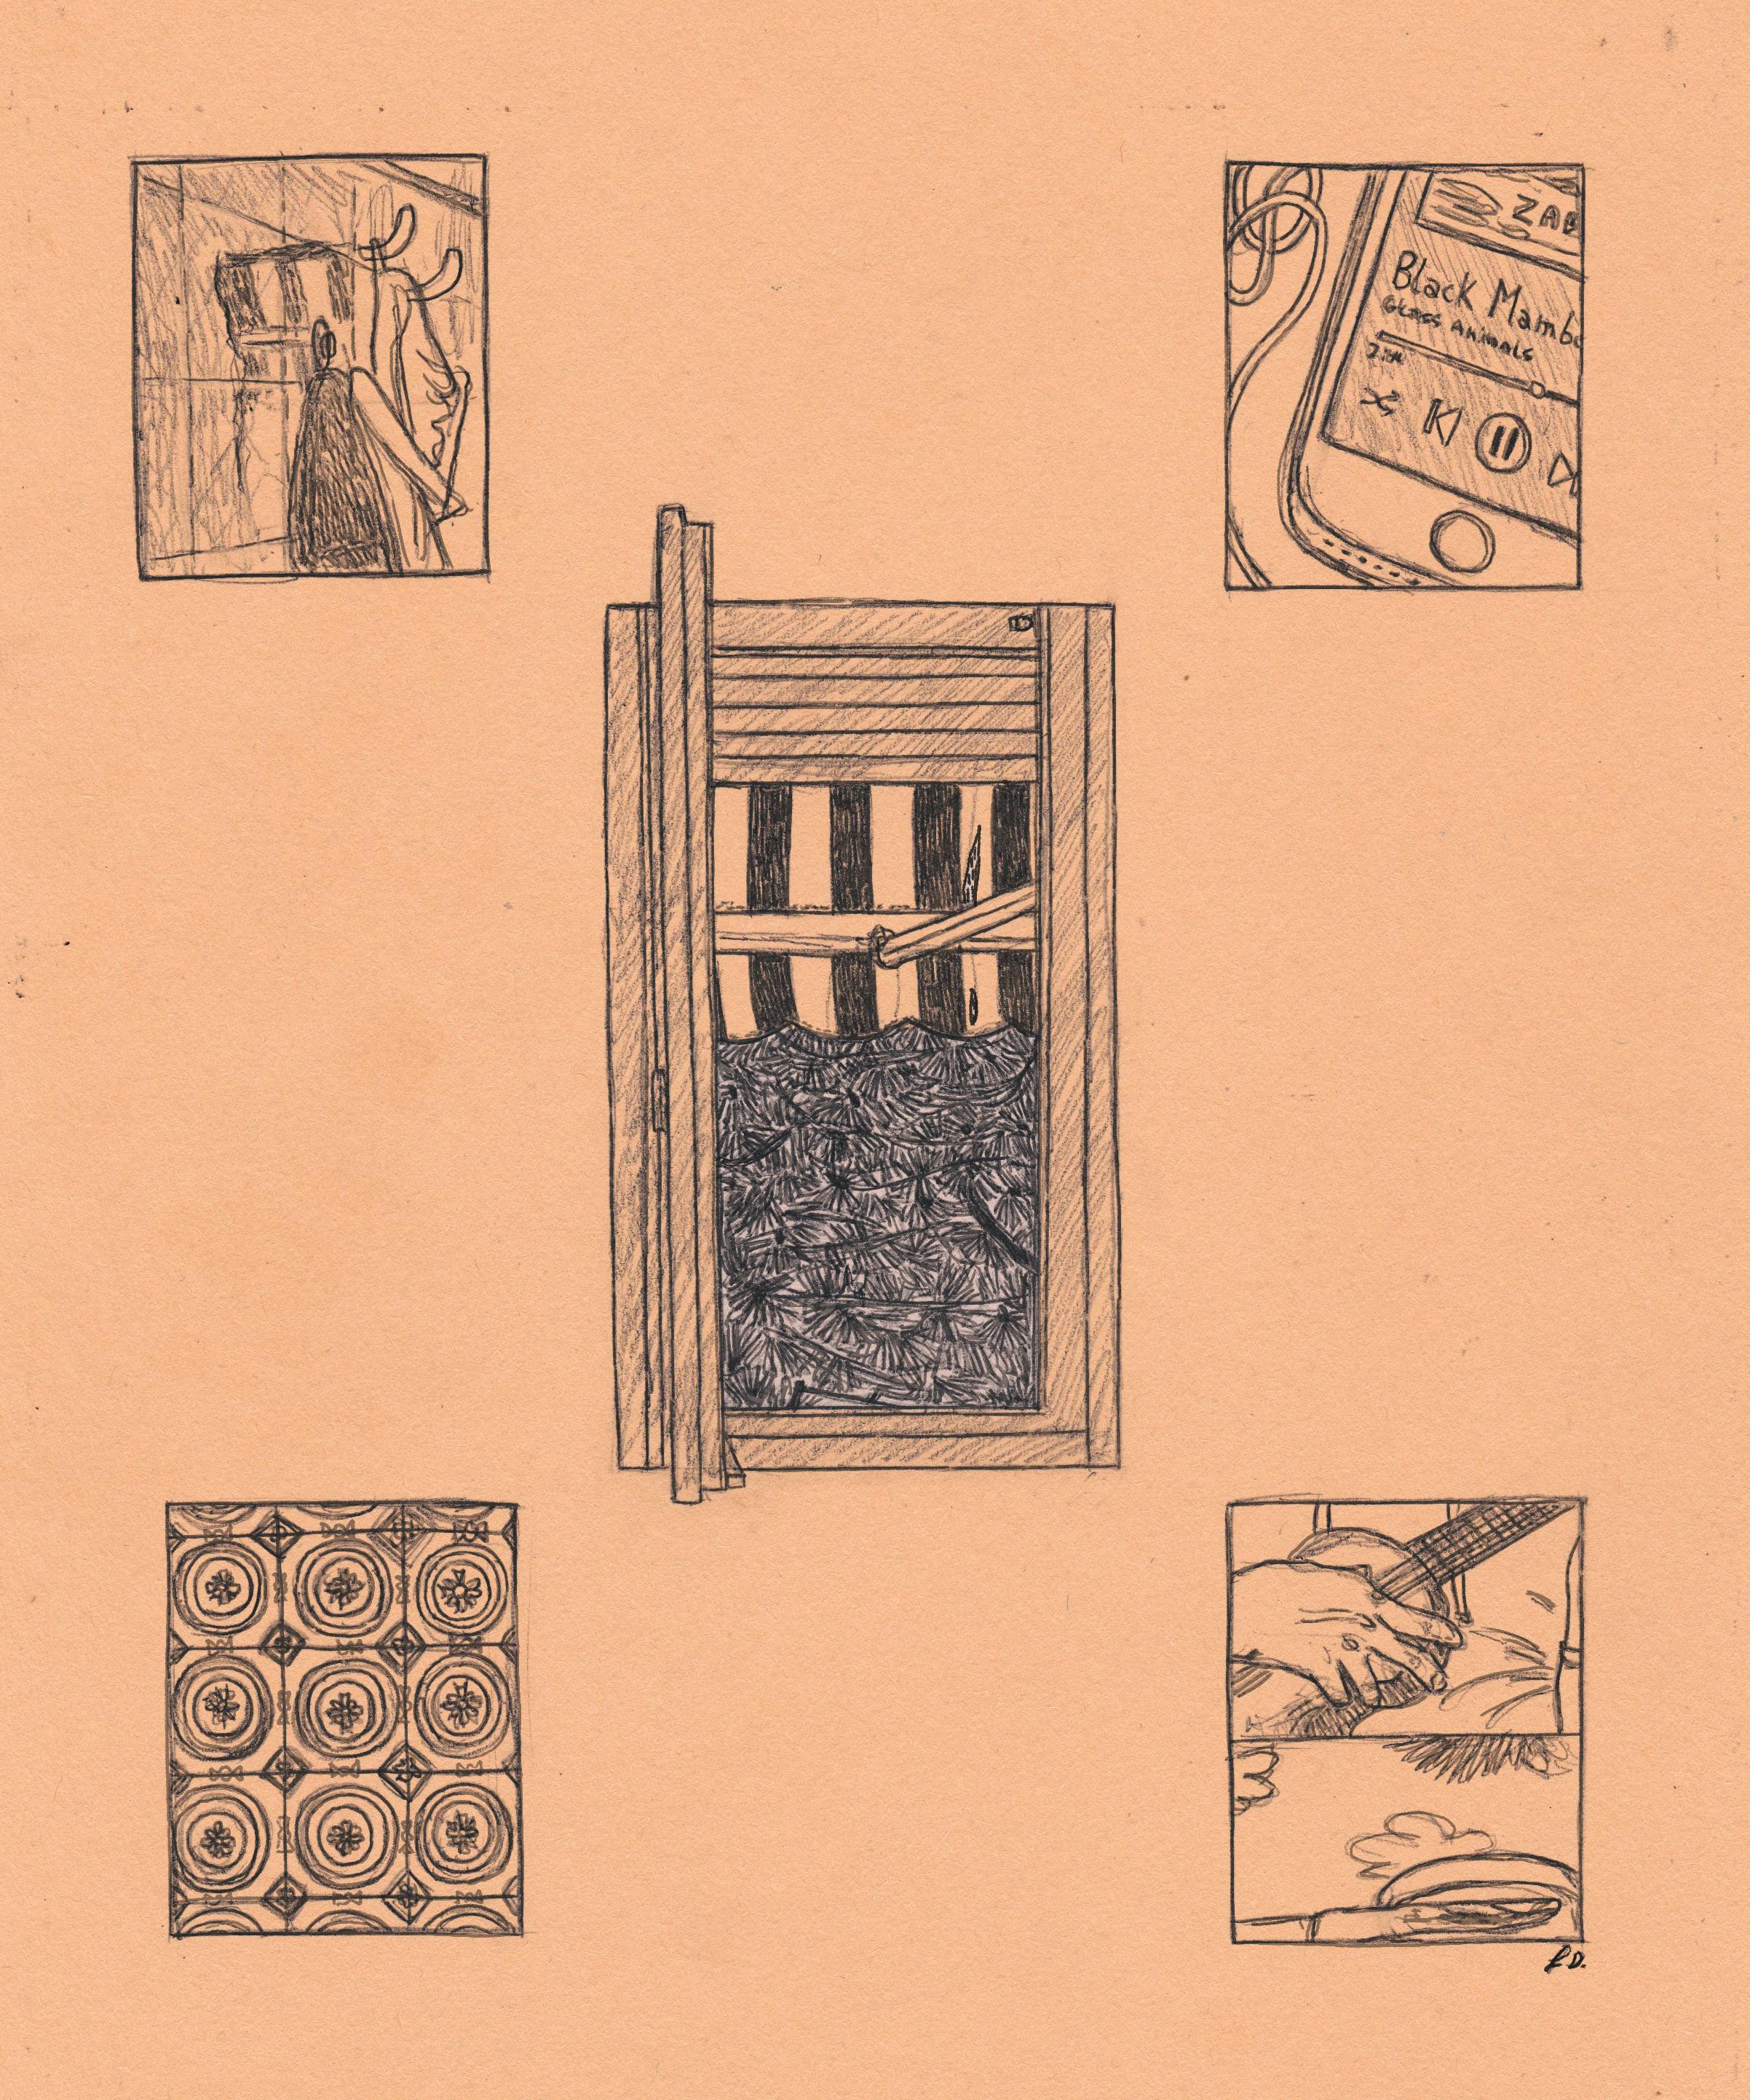 ZAB
Black Mamb
GLASS ANIMALS